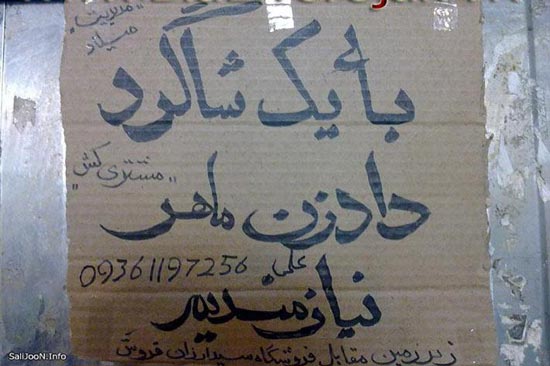 "مدیریت
میلاد"
بائیک شاگرد
"مشتری کش"
دادزن ماهر
علمی
09361197256
نیازمندیم
زیرزمین مقابل فروشگاه سید ارزان فروش
SaliJooN.Info